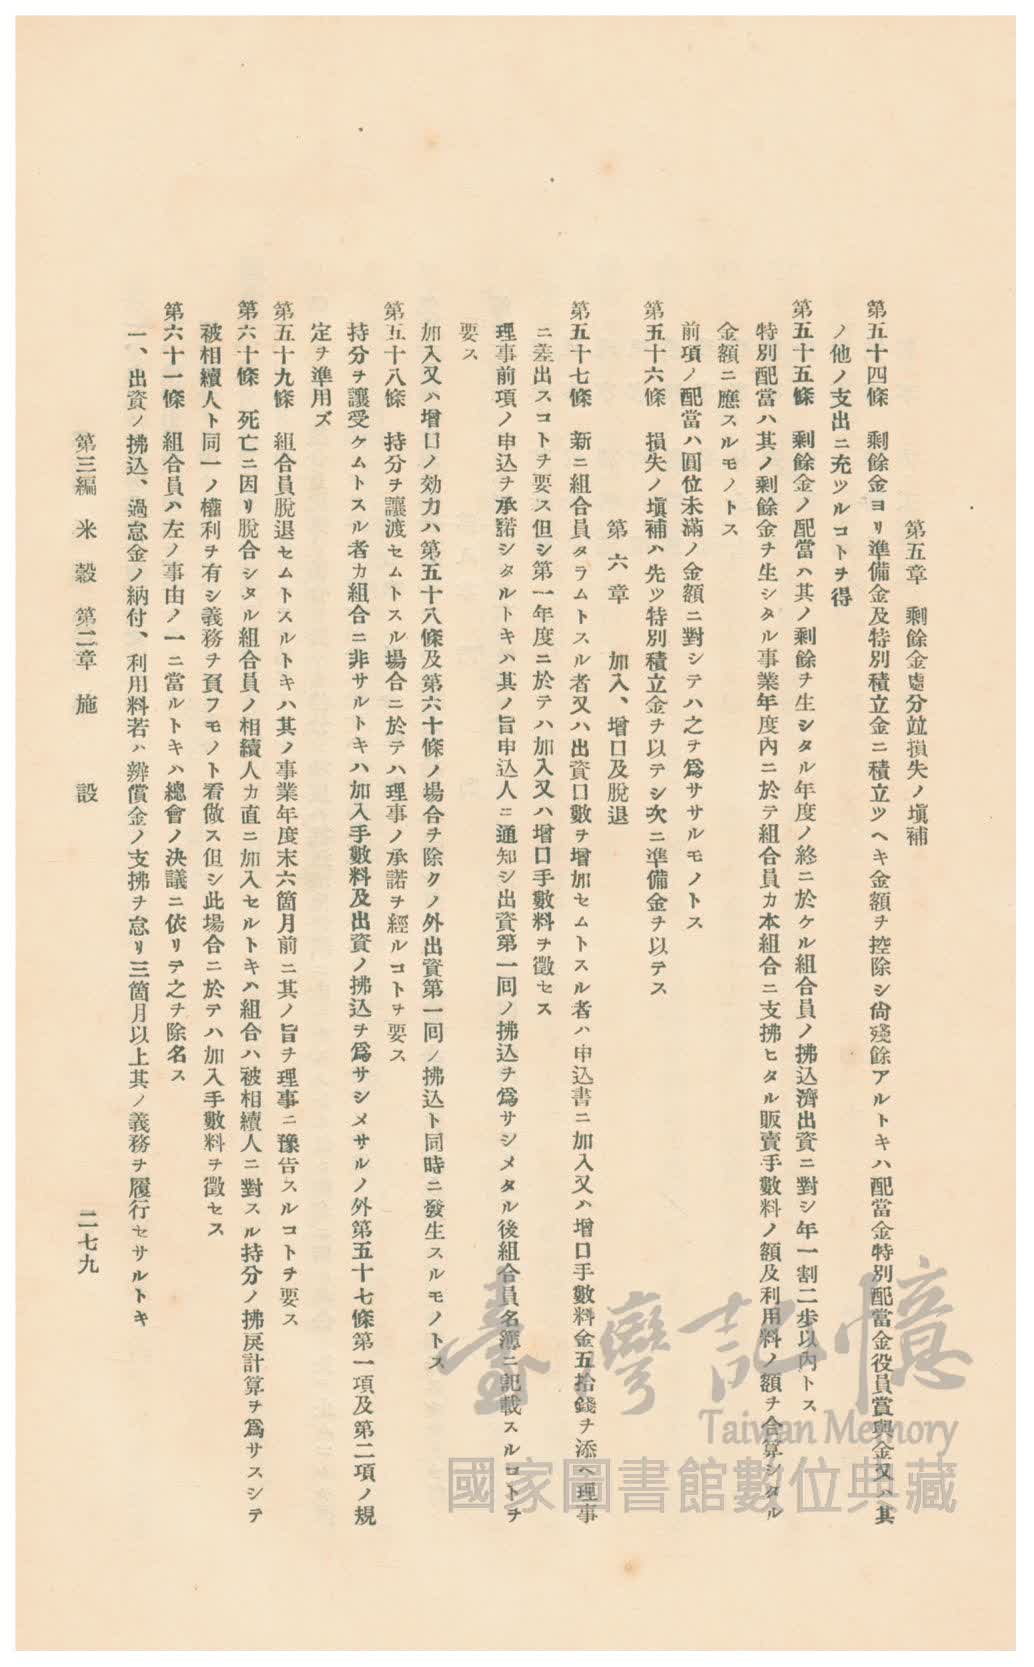 第五章　剩餘金處分竝損失ノ塡補
第五十四條　剩餘金ヨリ準備金及特別積立金ニ積立ツヘキ金額ヲ控除シ尙殘餘アルトキハ配當金特別配當金役員賞與金又ハ其
ノ他ノ支出ニ充ツルコトヲ得
第五十五條　剩餘金ノ配當ハ其ノ剩餘ヲ生シタル年度ノ終ニ於ケル組合員ノ拂込濟出資ニ對シ年一割二步以內トス
特別配當ハ其ノ剩餘金ヲ生シタル事業年度內ニ於テ組合員カ本組合ニ支拂ヒタル販賣手數料ノ額及利用料ノ額ヲ合算シタル
金額ニ應スルモノトス
前項ノ配當ハ圓位未滿ノ金額ニ對シテハ之ヲ爲ササルモノトス
第五十六條　損失ノ塡補ハ先ツ特別積立金ヲ以テシ次ニ準備金ヲ以テス
第六章　加入、增口及脫退
第五十七條　新ニ組合員タラムトスル者又ハ出資口數ヲ增加セムトスル者ハ申込書ニ加入又ハ增口手數料金五拾錢ヲ添ヘ理事
ニ差出スコトヲ要ス但シ第一年度ニ於テハ加入又ハ增口手數料ヲ徵セス
理事前項ノ申込ヲ承諾シタルトキハ其ノ旨申込人ニ通知シ出資第一回ノ拂込ヲ爲サシメタル後組合員名簿ニ記載スルコトヲ
要ス
加入又ハ增口ノ効力ハ第五十八條及第六十條ノ場合ヲ除クノ外出資第一回ノ拂込ト同時ニ發生スルモノトス
第五十八條　持分ヲ讓渡セムトスル場合ニ於テハ理事ノ承諾ヲ經ルコトヲ要ス
持分ヲ讓受ケムトスル者カ組合ニ非サルトキハ加入手數料及出資ノ拂込ヲ爲サシメサルノ外第五十七條第一項及第二項ノ規
定ヲ準用ズ
第五十九條　組合員脫退セムトスルトキハ其ノ事業年度末六箇月前ニ其ノ旨ヲ理事ニ豫告スルコトヲ要ス
第六十條　死亡ニ因リ脫合シタル組合員ノ相續人カ直ニ加入セルトキハ組合ハ被相續人ニ對スル持分ノ拂戾計算ヲ爲サスシテ
被相續人ト同一ノ權利ヲ有シ義務ヲ負フモノト看做ス但シ此場合ニ於テハ加入手數料ヲ徵セス
第六十一條　組合員ハ左ノ事由ノ一ニ當ルトキハ總會ノ決議ニ依リテ之ヲ除名ス
一、出資ノ拂込、過怠金ノ納付、利用料若ハ辨償金ノ支拂ヲ怠リ三箇月以上其ノ義務ヲ履行セサルトキ
第三編　米穀　第二章　施設　二七九
臺灣記憶
Taiwan Memory
國家圖書館數位典藏